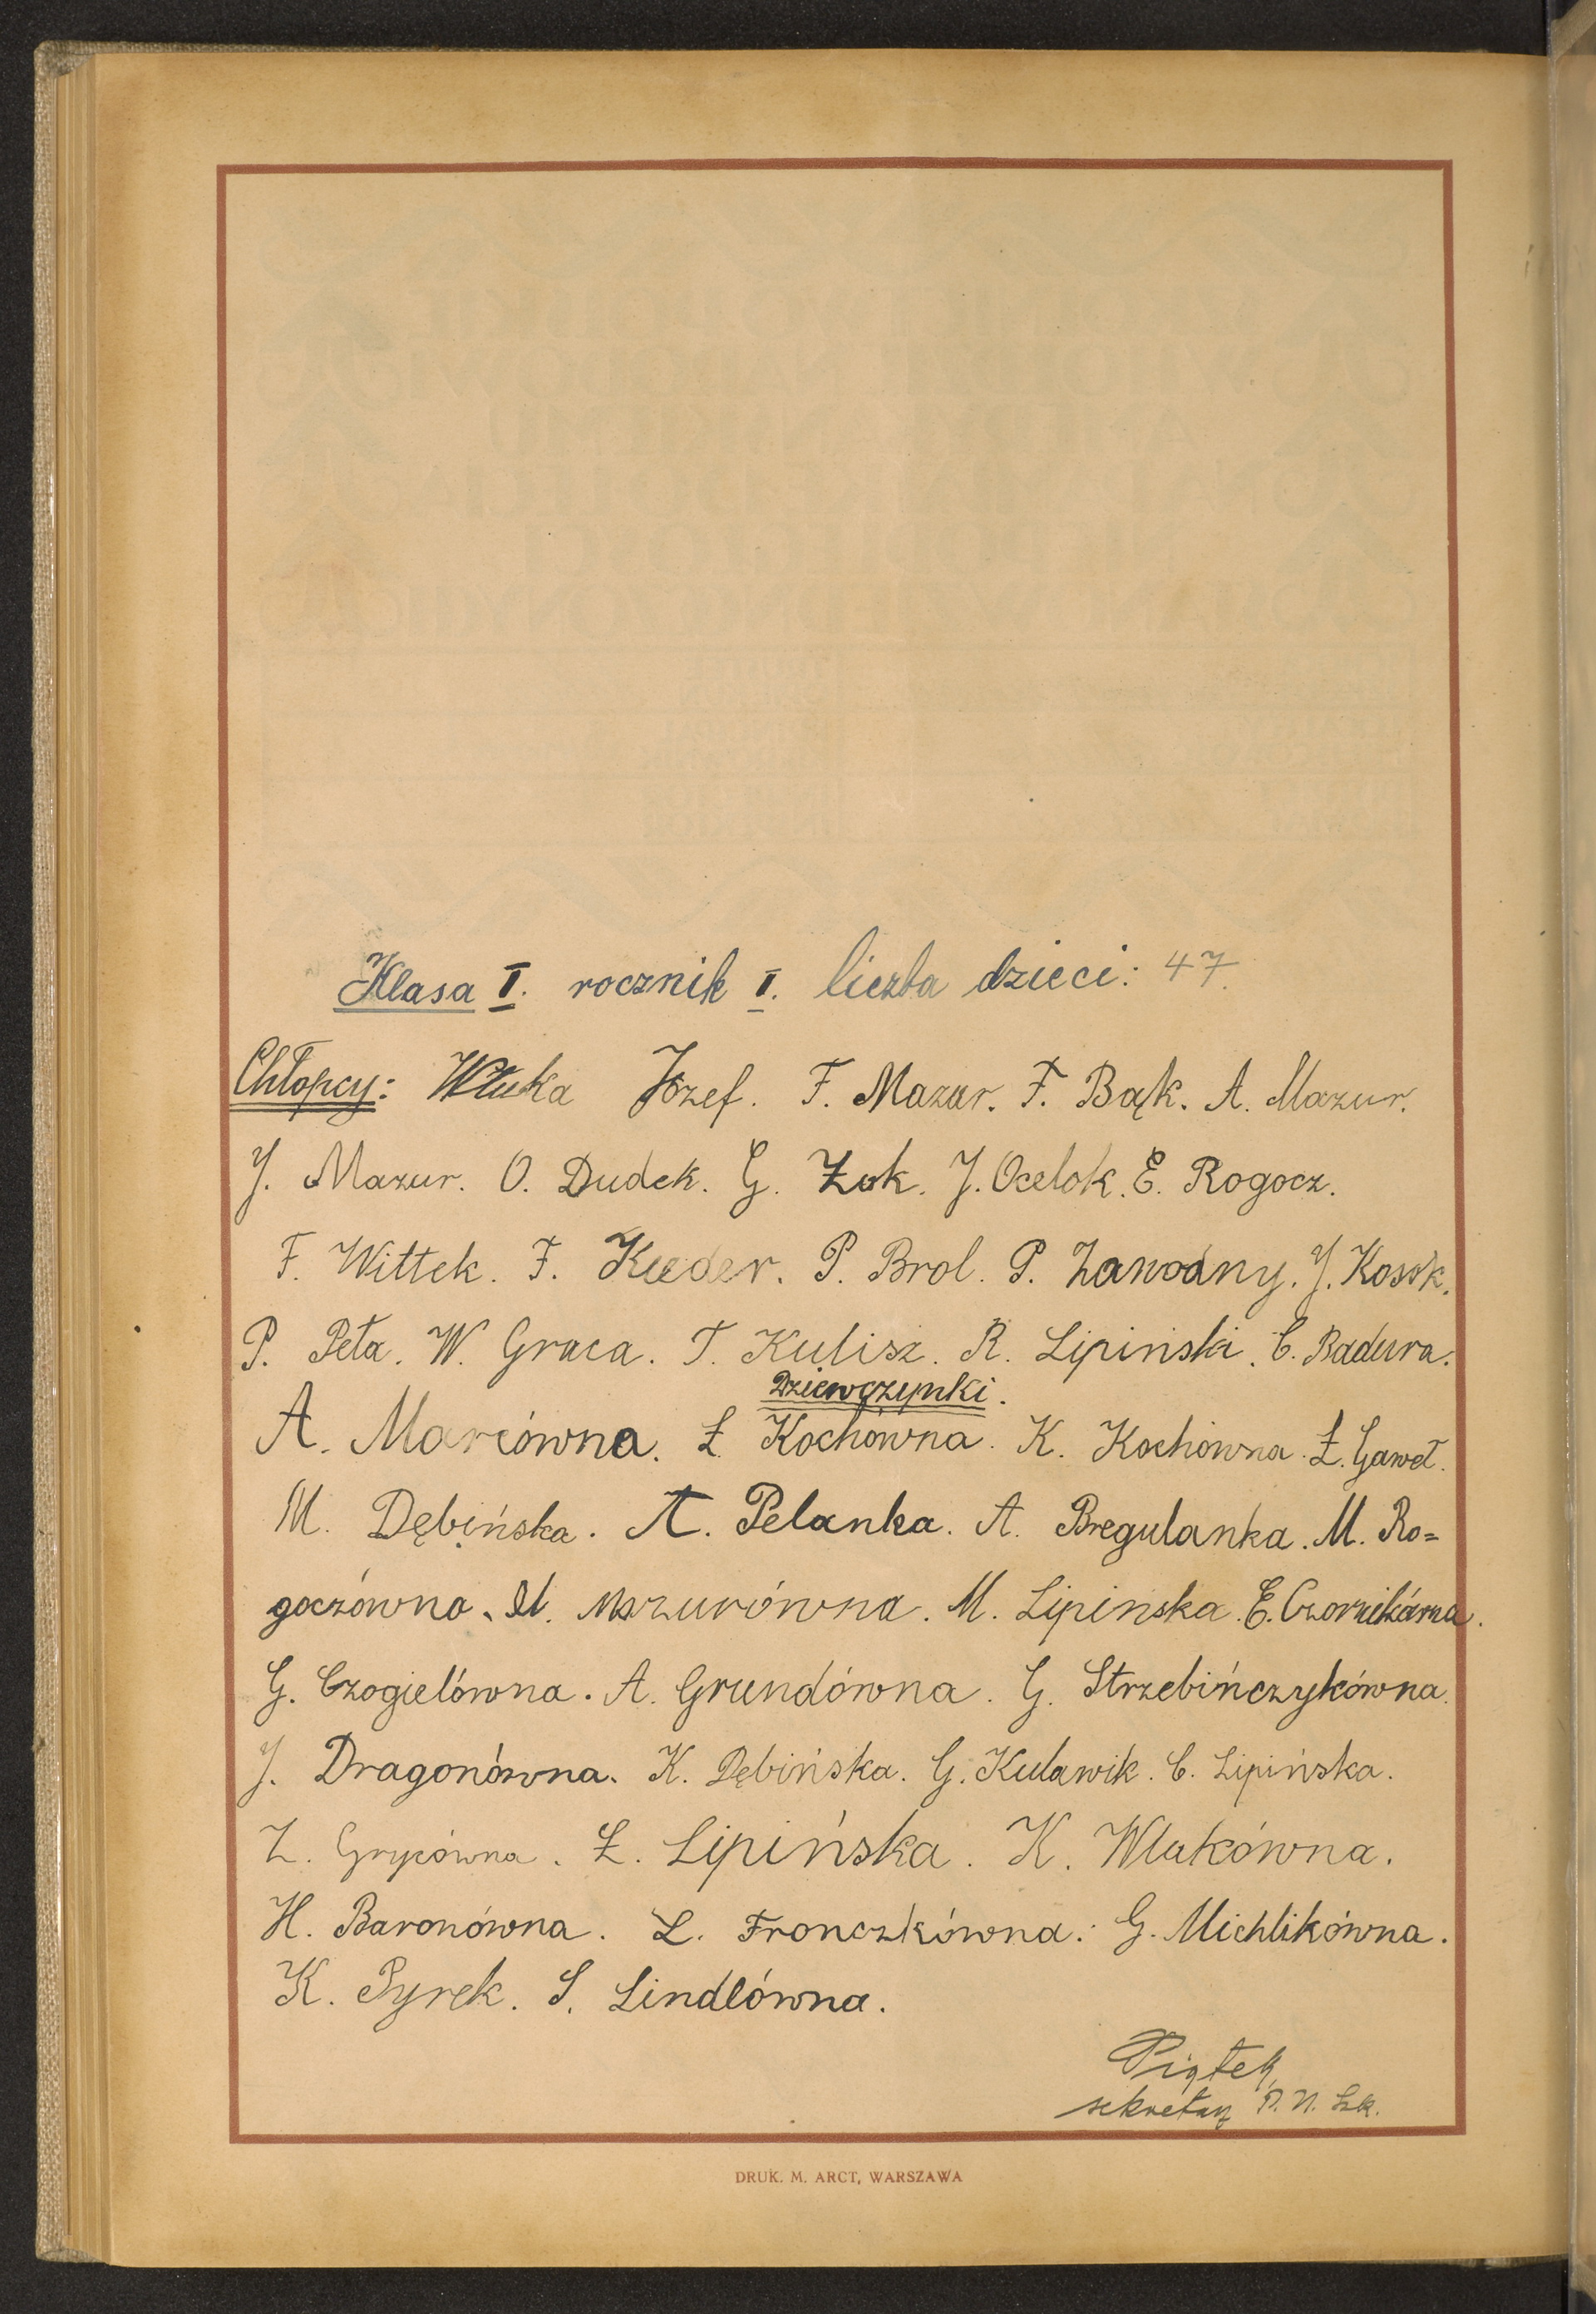 Klasa I. rocznik I. liczba dzieci: 47.
Chłopcy: Wluka Józef. F. Mazur. F. Bąk. A. Mazur.
J. Mazur. O. Dudek. G. Żok. J. Ocelok. E. Rogocz.
F. Wittek. F. Kuder. P. Brol. P. Zawodny. J. Kosok.
P. Peła. W. Graca. T. Kulisz. R. Lipiński. C. Badura.
Dziewczynki.
A. Marcówna. Ł. Kochówna. K. Kochówna. Ł. Gaweł.
M. Dębińska. A. Pelanka. A. Bregulanka. M. Ro=
goczówna. M. Mazurówna. M. Lipinska. E. Czornikówna.
G. Czogielówna. A. Grundówna. G. Strzebińczykówna.
J. Dragonówna. K. Dębińska. G. Kulawik. C. Lipińska.
Z. Grycówna. Ł. Lipińska. K. Wlukówna.
H. Baronówna. L. Fronczkówna. G. Michlikówna.
K. Pyrek. S. Lindlówna.
Piątek
sekretarz P. N. Szk.
DRUK. M. ARCT, WARSZAWA